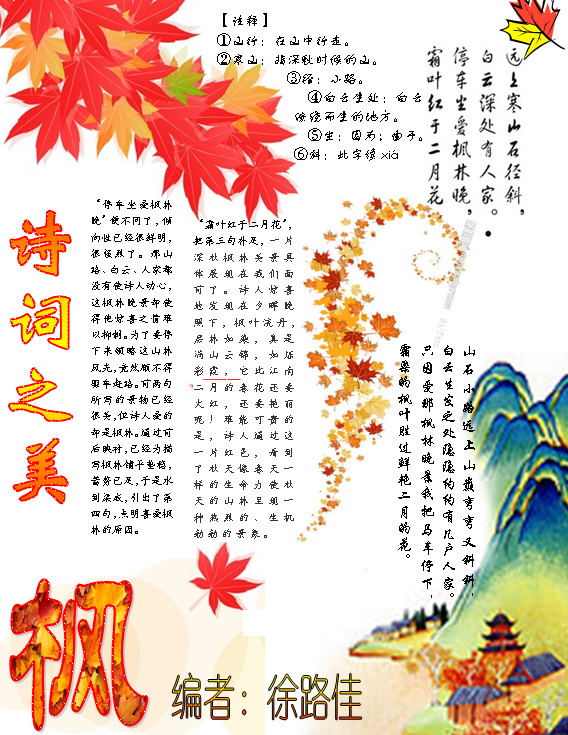 【注释】
①山行：在山中行走。
②寒山：指深秋时候的山。
③径：小路。
④白云生处：白云
缭绕而生的地方。
⑤坐：因为；由于。
⑥斜：此字读 xiá
远上寒山石径斜，
白云深处有人家。
停车坐爱枫林晚，
霜叶红于二月花
诗词之美
“停车坐爱枫林
晚”便不同了，倾
向性已经很鲜明，
很强烈了。那山
路、白云、人家都
没有使诗人动心，
这枫林晚景却使
得他惊喜之情难
以抑制。为了要停
下来领略这山林
风光，竟然顾不得
驱车赶路。前两句
所写的景物已经
很美，但诗人爱的
却是枫林。通过前
后映衬，已经为描
写枫林铺平垫稳，
蓄势已足，于是水
到渠成，引出了第
四句，点明喜爱枫
林的原因。
“霜叶红于二月花”，
把第三句补足，一片
深秋枫林美景具
体展现在我们面
前了。诗人惊喜
地发现在夕晖晚
照下，枫叶流丹，
层林如染，真是
满山云锦，如烁
彩霞，它比江南
二月的春花还要
火红，还要艳丽
呢！难能可贵的
是，诗人通过这
一片红色，看到
了秋天像春天一
样的生命力使秋
天的山林呈现一
种热烈的、生机
勃勃的景象。
山石小路远上山巅弯弯又斜斜，
白云生客之处隐隐约约有几户人家。
只因爱那枫林晚景我把马车停下，
霜染的枫叶胜过鲜艳二月的花。
枫
编者：徐路佳